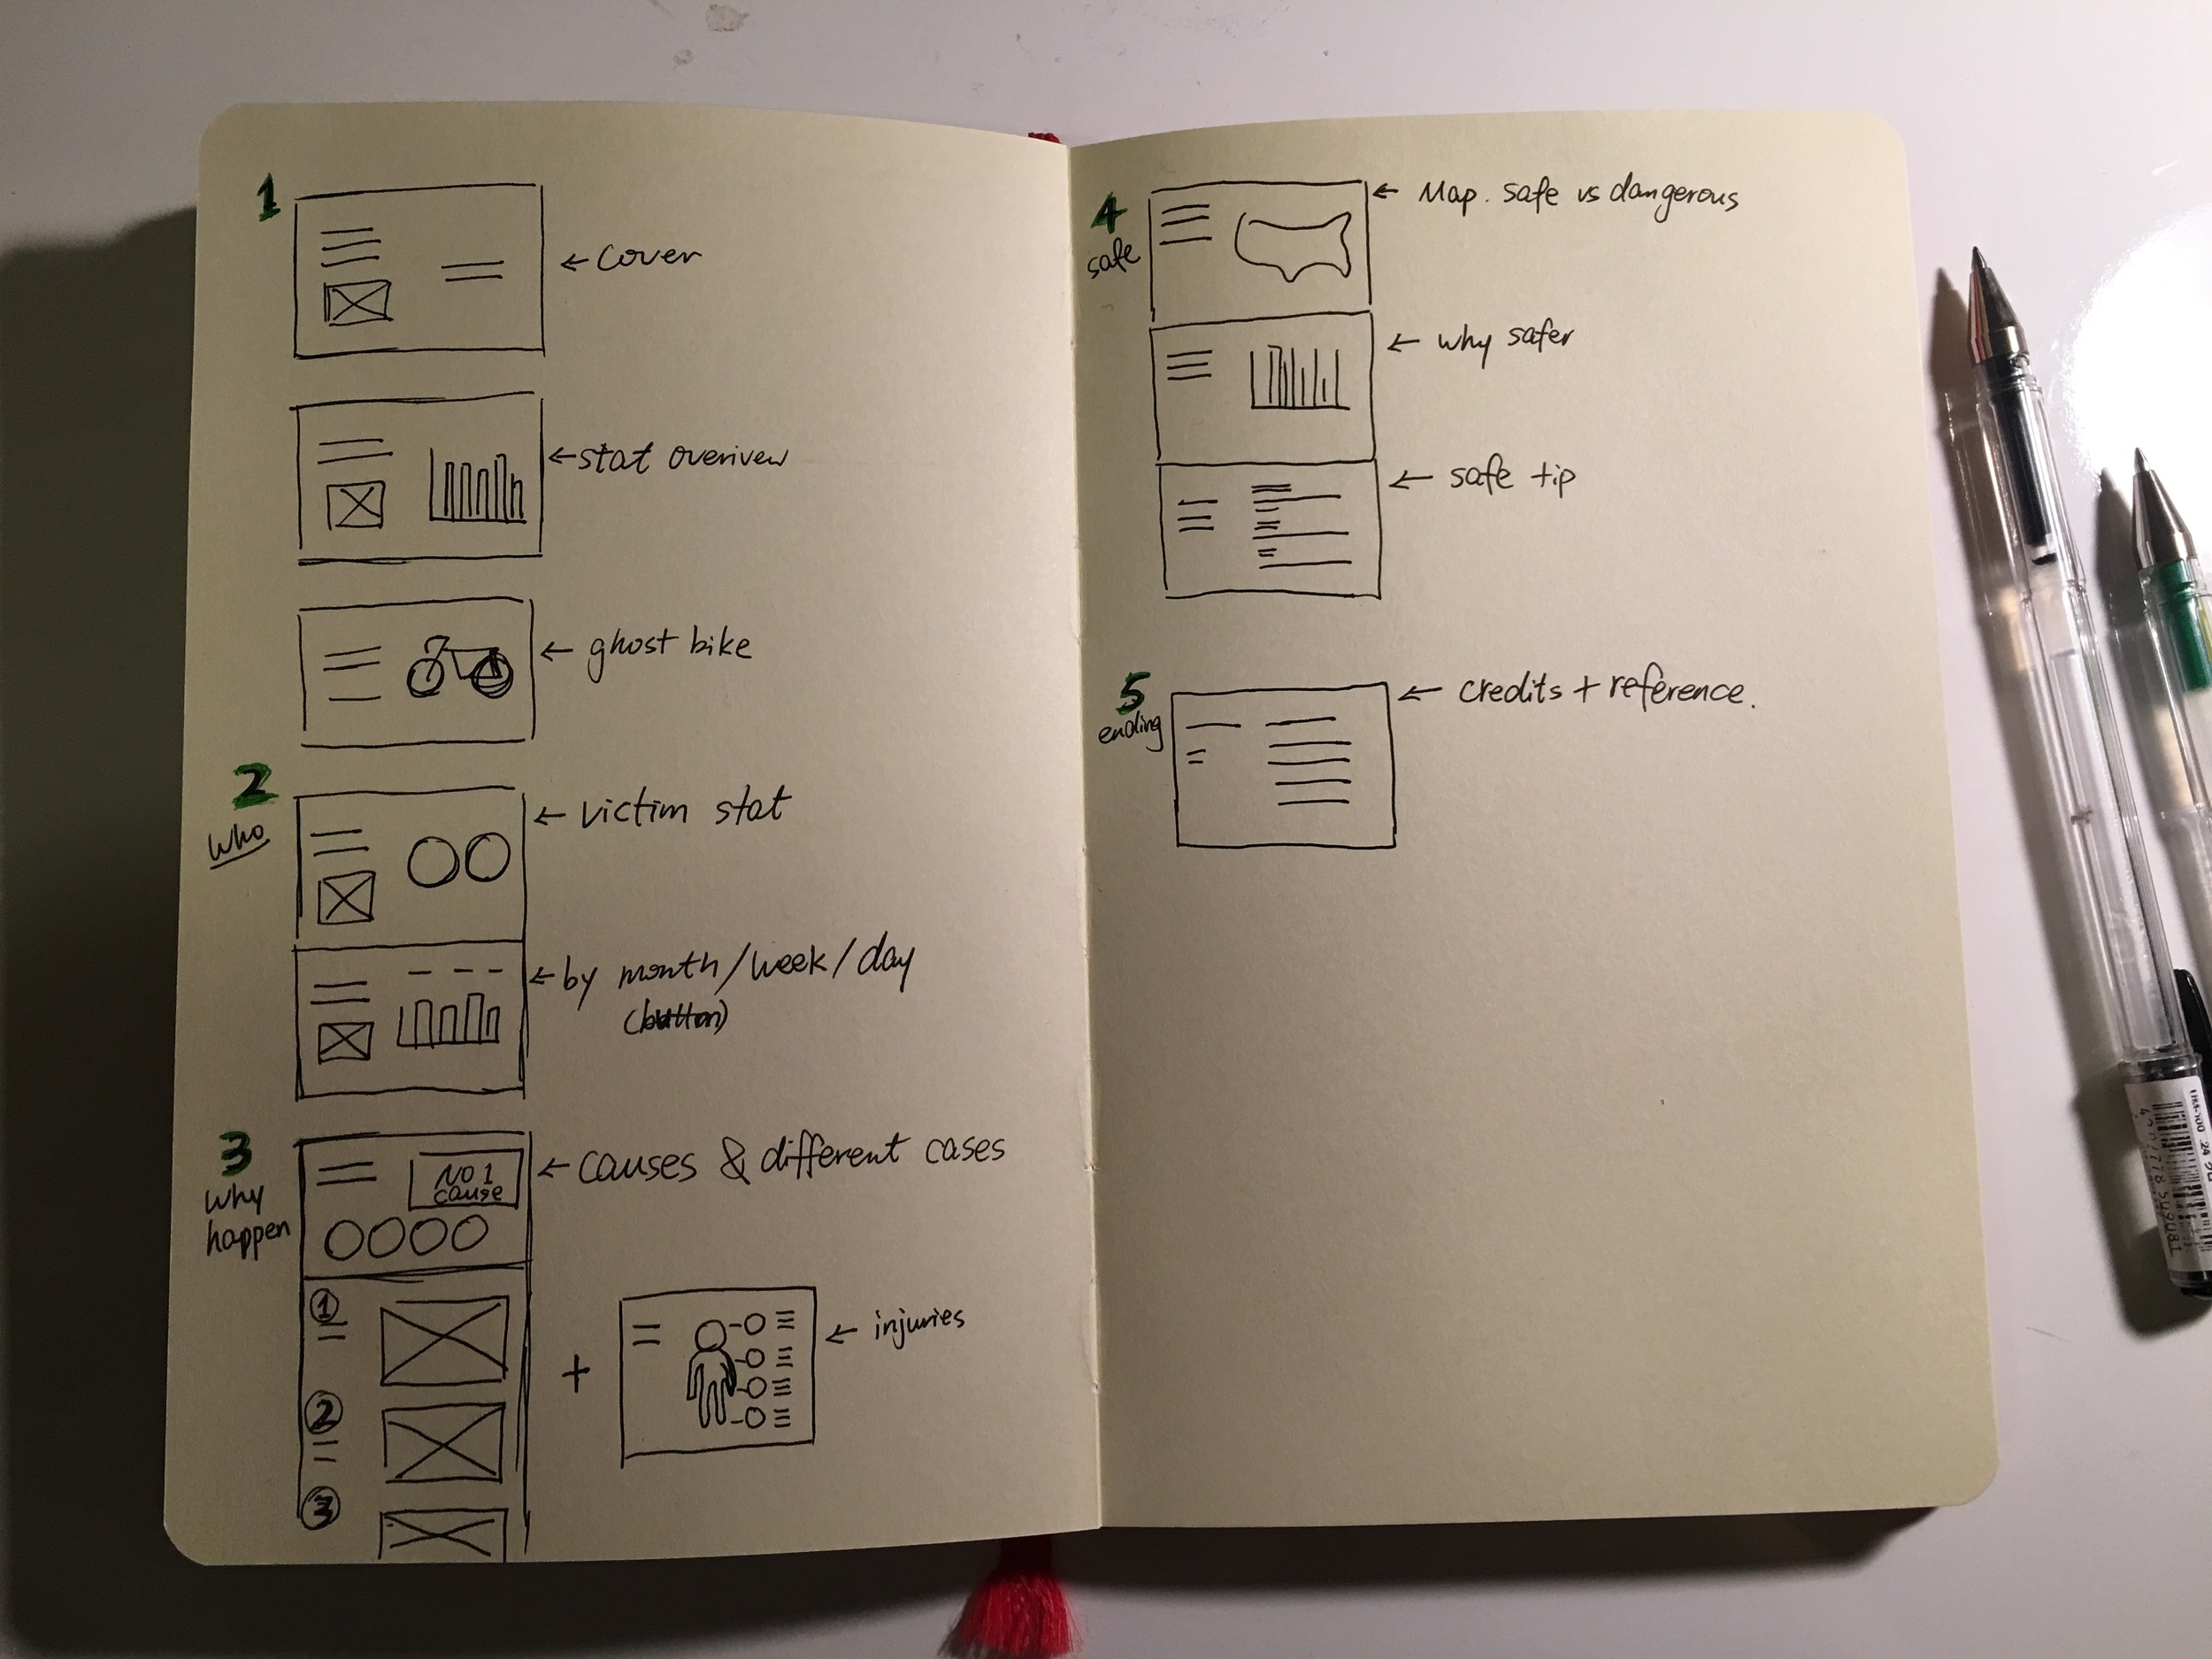 1
← cover
← stat overivew
← ghost bike
2
who
← victim stat
← by month/week/day
(button)
3
why
happen
NO 1
cause
← causes & different cases
1
2
3
+
← injuries
4
safe
← Map. safe vs dangerous
← why safer
← safe tip
5
ending
← credits + reference.